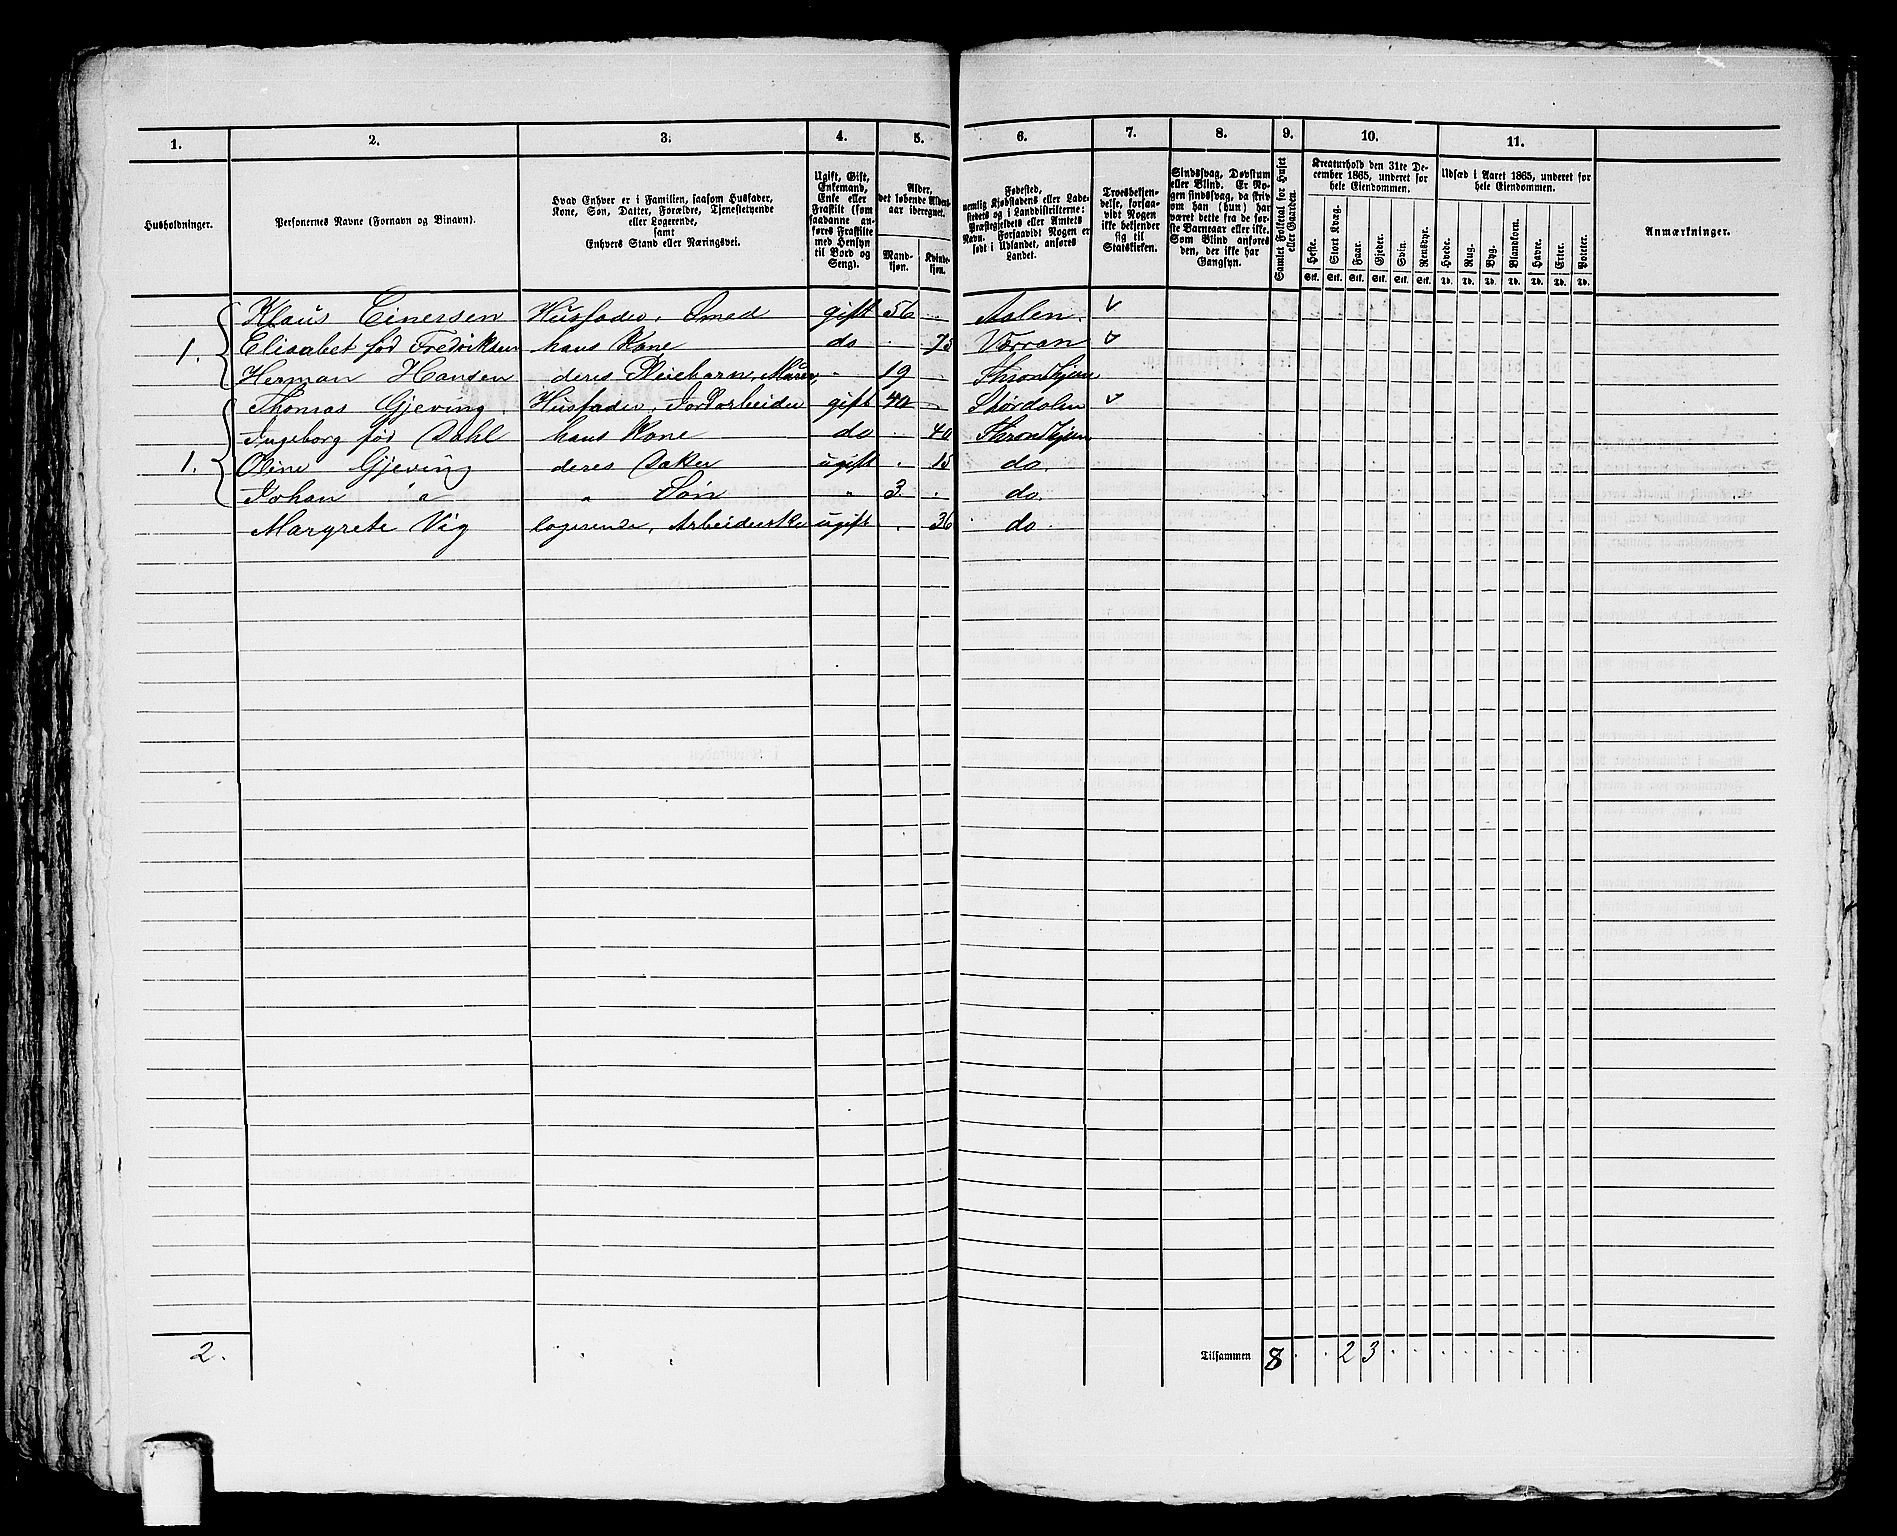 1. 2. 3. 4. 5. 6. 7. 8. 9. 10. 11.
Husholdninger.
Personernes Navne (Fornavn og Binavn).
Hvad Enhver er i Familien, saasom Husfader,
Kone, Søn, Datter, Forældre, Tjenestetyende
eller Logerende,
samt
Enhvers Stand eller Næringsvei.
Ugift, Gift,
Enkemand,
Enke eller
Fraskilt (som
saadanne an-
føres Fraskilte
med Hensyn
til Bord og
Seng).
Alder,
det løbende Alders-
aar iberegnet.
Mand-
kjøn.
Kvinde-
kjøn.
Fødested,
nemlig Kjøbstadens eller Lade-
stedets og i Landdistrikterne:
Præstegjeldets eller Amtets
Navn. Forsaavidt Nogen er
født i Udlandet, anføres
Landet.
Troesbekjen-
delse, forsaa-
vidt Nogen
ikke bekjender
sig til
Statskirken.
Sindssvag, Døvstum
eller Blind. Er No-
gen sindssvag, da skriv
om han (hun) har
været dette fra de før-
ste Barneaar eller ikke.
Som Blind anføres
den, der ikke har
Gangsyn.
Samlet Folketal for Huset
eller Gaarden.
Kreaturhold den 31te De-
cember 1865, underet for
hele Eiendommen.
Heste. Stort Kvæg. Faar. Gjeder. Svin. Rensdyr.
Stk. Stk. Stk. Stk. Stk. Stk.
Udsæd i Aaret 1865, underet for
hele Eiendommen.
Hvede. Rug. Byg. Blandkorn. Havre. Erter. Poteter.
Td. Td. Td. Td. Td. Td. Td.
Anmærkninger.
Klaus Einersen Husfader, Smed gift 56 Aalen.
1. Elisabet fød Fredriksen hans Kone do 73 Værran
Herman Hansen deres Pleiebarn, Murer 19 Thronhjem
Thomas Gjeving. Husfader, Jordarbeider gift 40 Stördalen
Ingeborg fød Dahl hans Kone do 40 Thronhjem
1. Oline Gjeving deres Datter ugift 15 do.
Johan " " Søn " 3. do.
Margrete Vig logerende, Arbeiderske ugift 36 do.
2. Tilsammen 8 . . 2 3 . . . . . . . . .